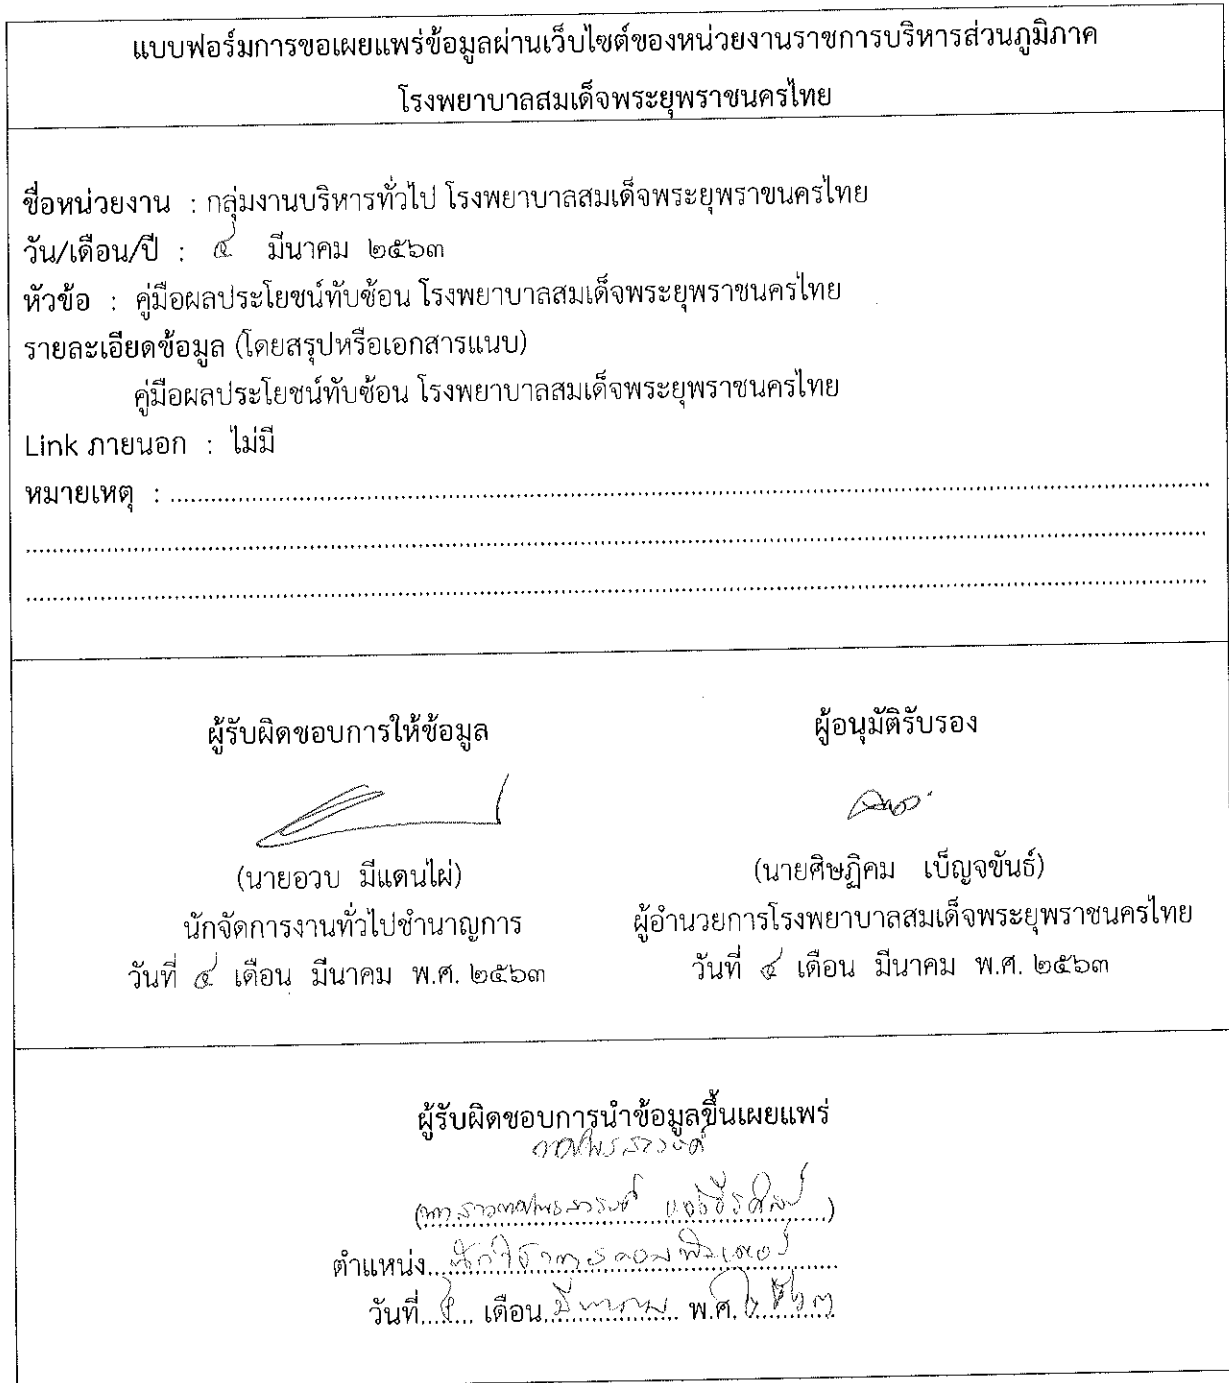 แบบฟอร์มการขอเผยแพร่ข้อมูลผ่านเว็บไซต์ของหน่วยงานราชการบริหารส่วนภูมิภาค
โรงพยาบาลสมเด็จพระยุพราชนครไทย
ชื่อหน่วยงาน : กลุ่มงานบริหารทั่วไป โรงพยาบาลสมเด็จพระยุพราชนครไทย
วัน/เดือน/ปี : ๔ มีนาคม ๒๕๖๓
หัวข้อ : คู่มือผลประโยชน์ทับซ้อน โรงพยาบาลสมเด็จพระยุพราชนครไทย
รายละเอียดข้อมูล (โดยสรุปหรือเอกสารแนบ)
คู่มือผลประโยชน์ทับซ้อน โรงพยาบาลสมเด็จพระยุพราชนครไทย
Link ภายนอก : ไม่มี
หมายเหตุ :
ผู้รับผิดชอบการให้ข้อมูล
(นายอวบ มีแดนไผ่)
นักจัดการงานทั่วไปชำนาญการ
วันที่ ๔ เดือน มีนาคม พ.ศ. ๒๕๖๓
ผู้อนุมัติรับรอง
(นายศิษฏิคม เบ็ญจขันธ์)
ผู้อำนวยการโรงพยาบาลสมเด็จพระยุพราชนครไทย
วันที่ ๔ เดือน มีนาคม พ.ศ. ๒๕๖๓
ผู้รับผิดชอบการนำข้อมูลขึ้นเผยแพร่
ตำแหน่ง นักวิชาการคอมพิวเตอร์
วันที่ ๔ เดือน มีนาคม พ.ศ. ๒๕๖๓